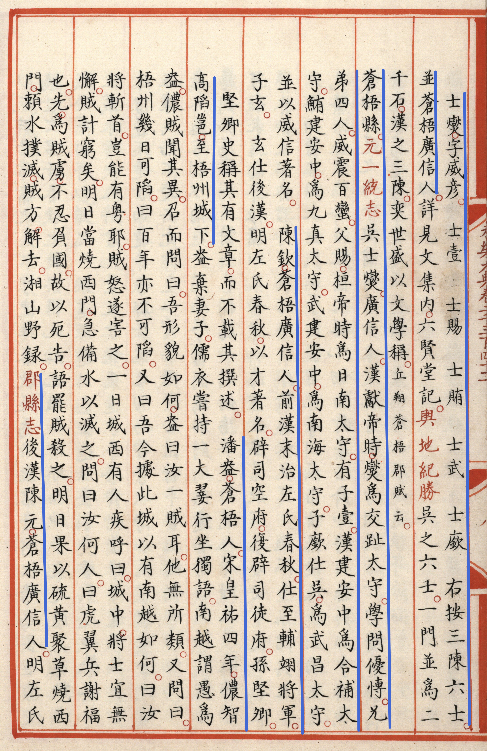 士燮字威彥 士壹 士賜 士䵋 士武 士廞 右按三陳六士
並蒼梧廣信人詳見文集內六賢堂記輿地紀勝吳之六士一門並為二
千石漢之三陳奕世盛以文學稱丘翔蒼梧郡賦云
蒼梧縣元一統志吳士燮廣信人漢獻帝時燮為交趾太守學問優慱兄
弟四人威震百蠻父賜桓帝時為日南太守有子壹漢建安中為合補太
守䵋建安中為九真太守武建安中為南海太守子廞仕吳為武昌太守
並以威信著名陳欽蒼梧廣信人前漢末治左氏春秋仕至輔翊將軍
子玄 玄仕後漢明左氏春秋以才著名辟司空府復辟司徒府孫堅卿
堅卿史稱其有文章而不載其撰述 潘盎蒼梧人宋皇祐四年儂智
高陷邕至梧州城下盎棄妻子儒衣嘗持一大翣行坐獨語南越謂愚為
盎儂賊聞其異召而問曰吾形貌如何盎曰汝一賊耳他無所類又問曰
梧州幾日可陷曰百年亦不可陷又曰吾今據此城以有南越如何曰汝
將斬首豈能有粵耶賊怒遂害之一日城西有人疾呼曰城中將士宜無
懈賊計窮矣明日當燒西門急備水以滅之問曰汝何人曰虎翼兵謝福
也先為賊虜不忍負國故以死告語罷賊殺之明日果以硫黃聚草燒西
門賴水撲滅賊方解去湘山野錄郡縣志後漢陳元蒼梧廣信人明左氏